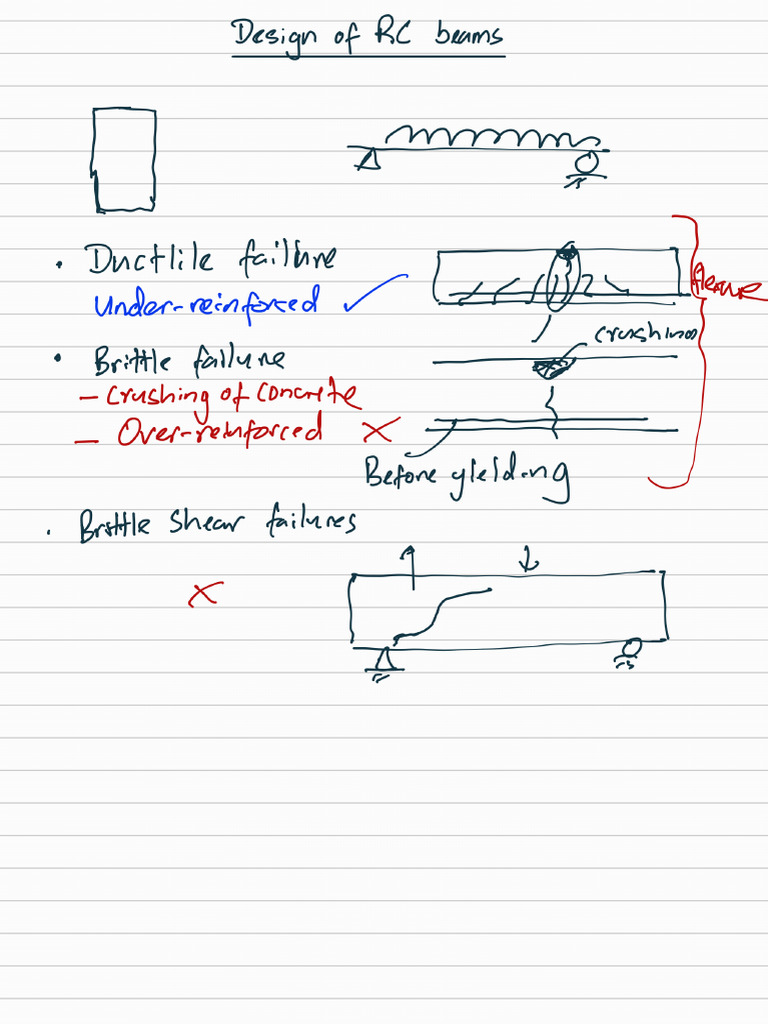 Design of RC beams
• Ductlile failure
Under-reinforced ✓
flexure
crushing
• Brittle failure
– Crushing of concrete
– Over-reinforced ✗
Before yielding
• Brittle shear failures
✗